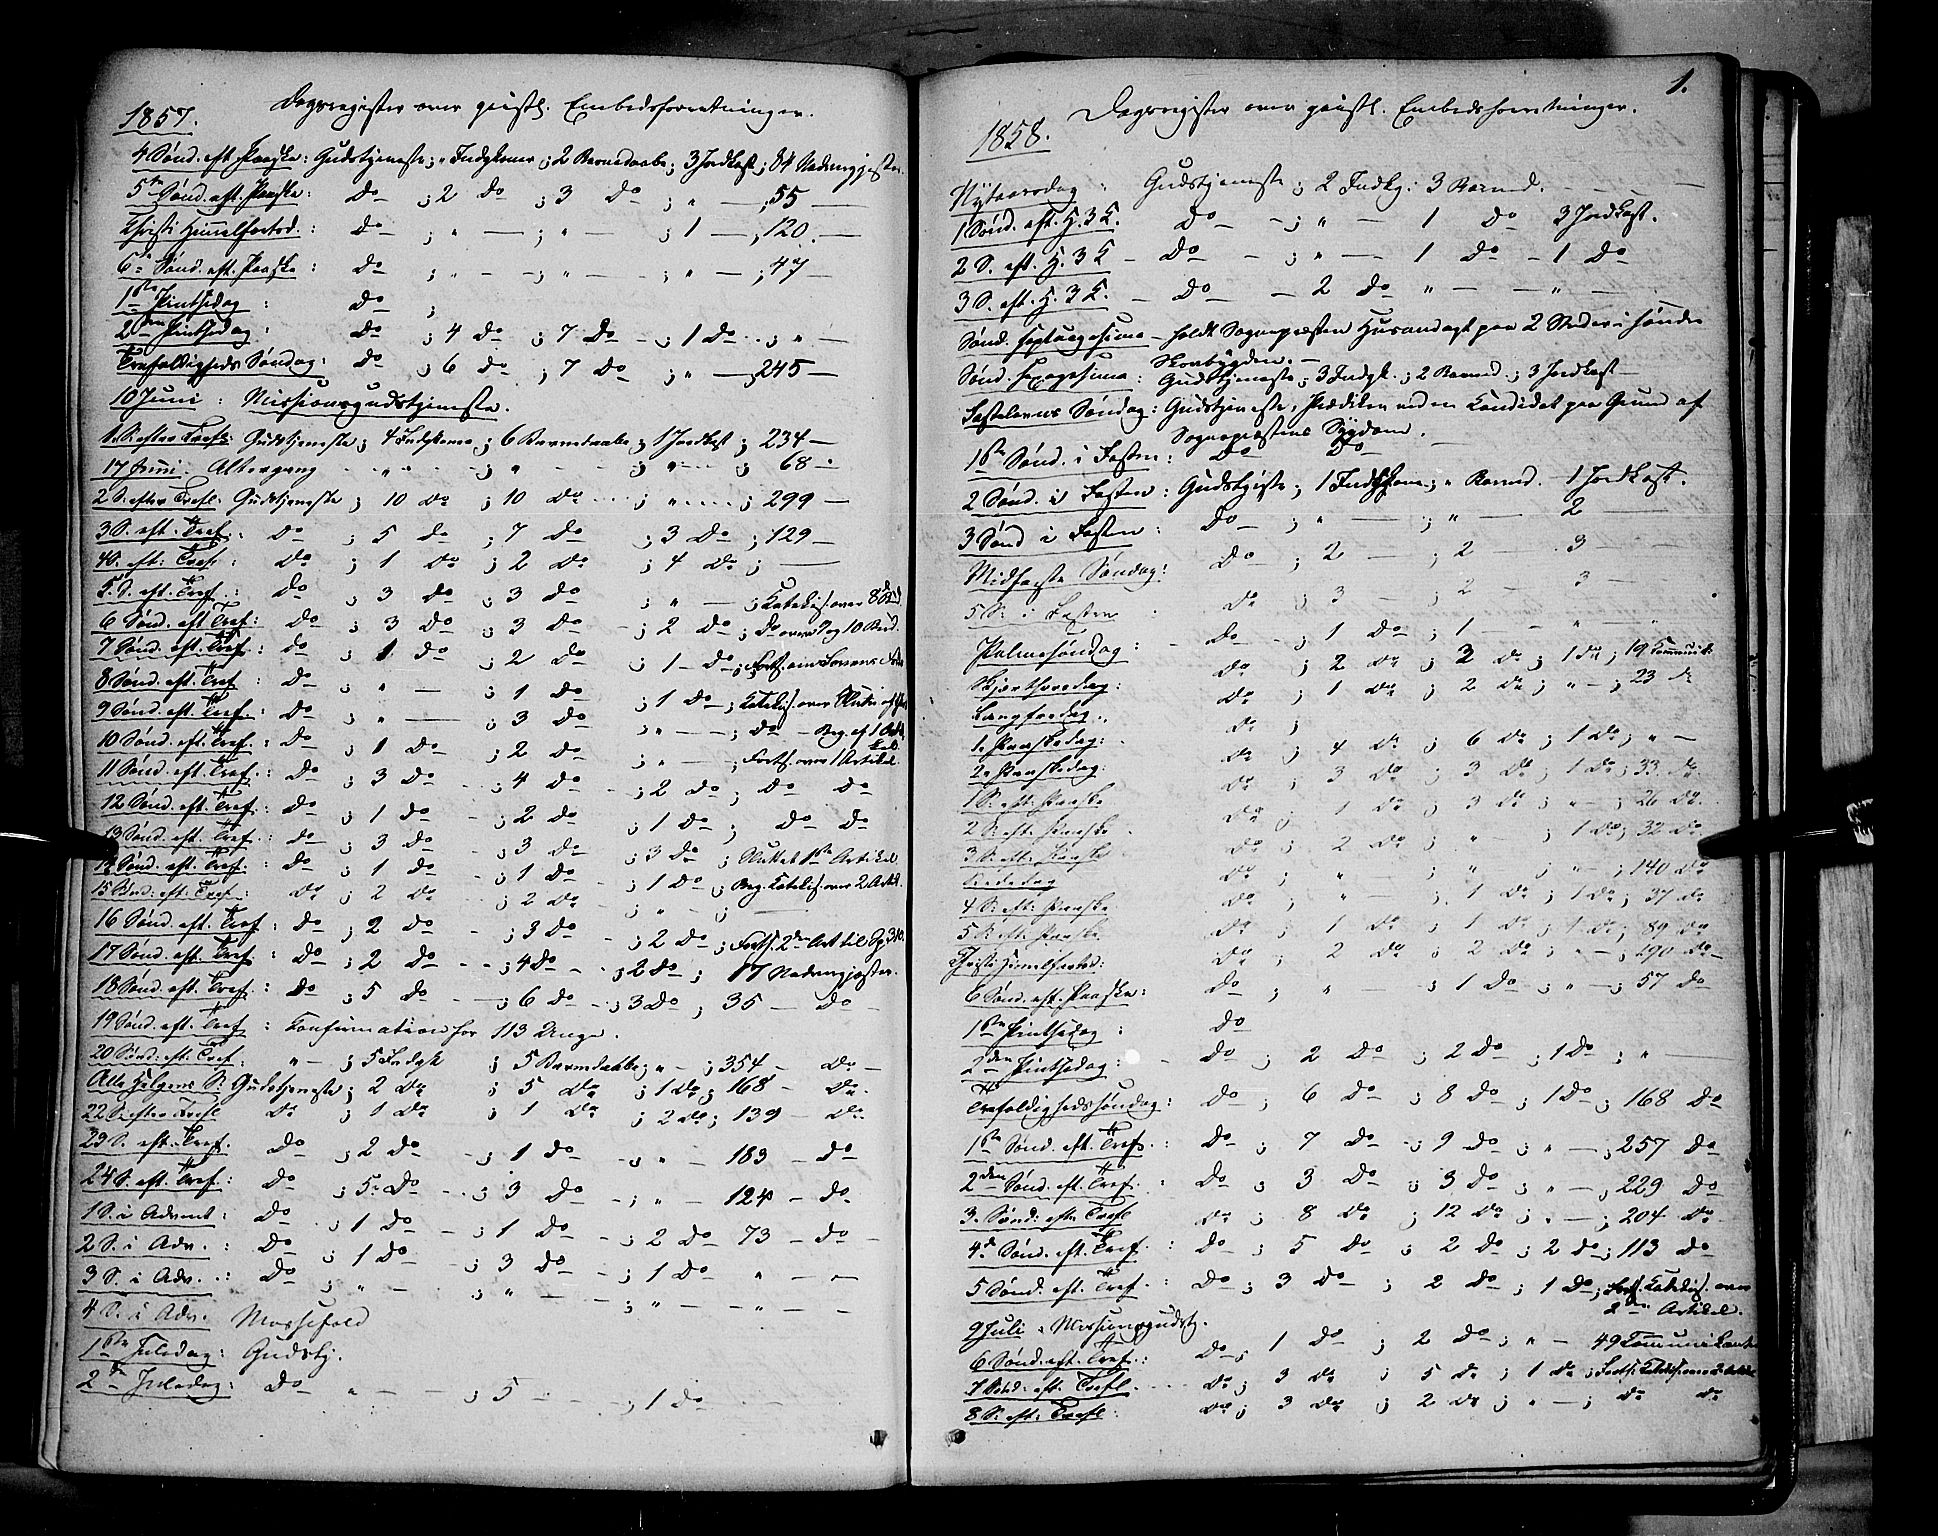 1857. Dagsregister over geistl. Embedsforretninger.
4 Sønd. eft. Paaske: Gudstjeneste; „ Indgkoner; 2 Barnedaabe; 3 Jordkast; 84 Nadvergjester.
5te Sønd. eft. Paaske: Do ; 2 Do ; 3 Do ; „ — ; 55 —
Christi Himelfartsd.: Do ; „ — ; „ — ; 1 — ; 120. —
6te Sønd. eft. Paaske: Do ; „ — ; „ — ; „ — ; 47 —
1ste Pintsedag: Do ;
2den Pintsedag: Do ; 4 Do ; 7 Do ; 1 Do ; „ —
Trefoldigheds Søndag: Do ; 6 Do ; 7 Do ; „ — ; 245 —
10 Juni: Missionsgudstjeneste.
1. S. efter Tref: Gudstjeneste; 4 Indgkone; 6 Barnedaabe; 1 Jordkast; 234 —
17 Juni. Altergang „ — ; „ — ; „ ; 68 —
2 S. efter Trefl: Gudstjeneste; 10 Do ; 10 Do ; „ ; 299 —
3 S. eft. Tref.: Do ; 5 Do ; 7 Do ; 3 Do ; 129 —
4 S. eft: Tref: Do ; 1 Do ; 2 Do ; 4 Do ; —
5. S. eft. Tref.: Do ; 3 Do ; 3 Do ; „ — ; Katekis. over 8 Bud
6 Sønd. eft Tref: Do ; 3 Do ; 3 Do ; 2 Do ; Do over 9 og 10 Bud.
7 Sønd. eft. Tref: Do ; 1 Do ; 2 Do ; 1 Do ; Forts. om Lovens
8 Sønd. eft. Tref: Do ; „ — ; 1 Do ; 1 Do ; Katekis. over Slutn. af
9 Sønd. eft. Tref.: Do ; „ — ; 3 Do ; „ — ; Do — Beg. af 1 Arti
10 Sønd. eft. Tref.: Do ; 1 Do ; 2 Do ; „ — ; Forts. over 1 Artikel.
11 Sønd. eft. Tref.: Do ; 3 Do ; 4 Do ; 2 Do ; Do Do
12 Sønd. eft. Tref.: Do ; 1 Do ; 2 Do ; 1 Do ; Do Do
13 Sønd. eft. Tref.: Do ; 3 Do ; 3 Do ; 3 Do ; Sluttet 1ste Artikel
14 Sønd. eft. Tref.: Do ; 1 Do ; 1 Do ; 1 Do ; Beg. Katekis. over 2 Artik.
15 Sønd: eft: Tref: Do ; 2 Do ; 2 Do ; „ — ; —
16 Sønd. eft. Tref: Do ; 2 Do ; 3 Do ; 2 Do ; Forts. 2den Art til
17 Sønd. eft. Tref: Do ; 2 Do ; 4 Do ; 2 Do ; 17 Nadvergjester.
18 Sønd. eft. Tref.: Do ; 5 Do ; 6 Do ; 3 Do ; 35 — Do
19 Sønd. eft. Tref: Konfirmation for 113 Unge.
20 Sønd: eft: Tref. „ — ; 5 Indgk ; 5 Barnedaabe; „ — ; 354 — Do —
Alle Helgens S: Gudstjeneste; 2 Do ; 5 Do ; 1 Do ; 168 — Do.
22 S. efter Trefl Do ; 1 Do ; 1 Do ; 2 Do ; 139 Do.
23 S. eft. Tref. Do ; 2 Do ; 1 Do ; „ — 183 — Do
24 S. eft. Tref.: Do ; 5 Do ; 3 Do ; „ — 124 — Do
1 S. i Advent: Do ; 1 Do ; 1 Do ; 2 Do 73 — Do
2 S. i Adv.: Do ; 1 Do ; 3 Do ; 1 Do „ —
3 S. i Adv.: Do ; „ — ; „ — ; „ — „ —
4 S. i Adv. Messefald
1ste Juledag: Gudstj.
2den Juledag: Do „ — ; 5 ; 1 Do
1.
1858. Dagsregister over geistl. Embedsforretninger.
Nytaarsdag: Gudstjeneste; 2 Indkg: 3 Barned. — —
1 Sønd. eft. H. 3 K. Do ; „ — 1 Do 3 Jordkast.
2 S. eft. H. 3 K — Do ; „ — 1 Do — 1 Do
3 S. eft. H. 3 K. — Do — 2 Do „ — „ —
Sønd. Septuagesima — holdt Sognepræsten Husandagt paa 2 Steder i Søndre
Skovbygden. —
Sønd. Sexagesima: Gudstjeneste; 3 Indgk.; 2 Barned.; 3 Jordkast —
Fastelavns Søndag: Gudstjeneste; Prædiken ved en Kandidat paa Grund af
Sognepræstens Sygdom.
1ste Sønd. i Fasten: Do Do
2 Sønd. i Fasten: Gudstjeneste; 1 Indgkone; „ Barned. 1 Jordkast.
3 Sønd i Fasten: Do ; „ — ; „ — 2 —
Midfaste Søndag: Do ; 2 — ; 2 — 3 —
5 S: i Fasten: Do ; 3 — ; 2 — 3 —
Palmesøndag: Do — ; 1 Do ; 1 — „ — „
Skjærthorsdag: Do ; 2 Do ; 2 Do ; 1 Do ; 19 Kommunik.
Langfredag: Do ; 1 Do ; 2 Do ; „ — ; 23 Do
1. Paaskedag: Do ;
2. Paaskedag: Do ; 4 Do ; 6 Do ; 1 Do ; „ —
1 S: eft: Paaske Do ; 3 Do ; 3 Do ; 1 Do ; 33 Do
2 S: eft: Paaske Do ; 1 Do ; 3 Do ; „ — ; 26 Do.
3 S: eft: Paaske Do ; 2 Do ; „ — ; 1 Do ; 32 Do
Bededag Do ; „ ; „ ; „ ; 140 Do
4 S: eft: Paaske Do ; „ ; 1 Do ; 1 Do ; 37 Do
5 S: eft: Paaske Do ; 1 Do ; 1 Do ; 1 Do ; 89 Do
Christi Himelfartsd: Do 2 Do ; 2 Do ; „ — ; 190 Do
6 Sønd. eft. Paaske: Do ; „ — ; 1 Do ; „ — ; 57 Do
1ste Pintsedag: Do
2den Pintsedag: Do ; 2 Do ; 2 Do ; 1 Do ; „ —
Trefoldighedssøndag: Do ; 6 Do ; 8 Do ; 1 Do ; 168 Do
1ste Sønd. eft. Tref.: Do ; 7 Do ; 9 Do ; „ — ; 257 Do
2den Sønd. eft. Tref.: Do ; 3 Do ; 3 Do ; „ — ; 229 Do
3. Sønd: efter Trefl Do ; 8 Do ; 12 Do ; „ — ; 204 Do
4de Sønd. eft. Tref.: Do ; 5 Do ; 2 Do ; 2 Do ; 113 Do
5 Sønd. eft. Tref.: Do ; 3 Do ; 2 Do ; 1 Do ; Forts. Katekis. over
2den Artikel.
9 Juli „ Missionsgudst.
6 Sønd. eft. Tref.: Do ; 1 Do ; 2 Do ; „ — 49 Kommunikanter
7 Sønd: eft: Trefl. Do ; 3 Do ; 5 Do ; 1 Do ; Forts. Katekis. over 2 Artikel
8 S: eft: Trefl: Do ; 3 Do ; 2 Do ; „ — ; Do Do